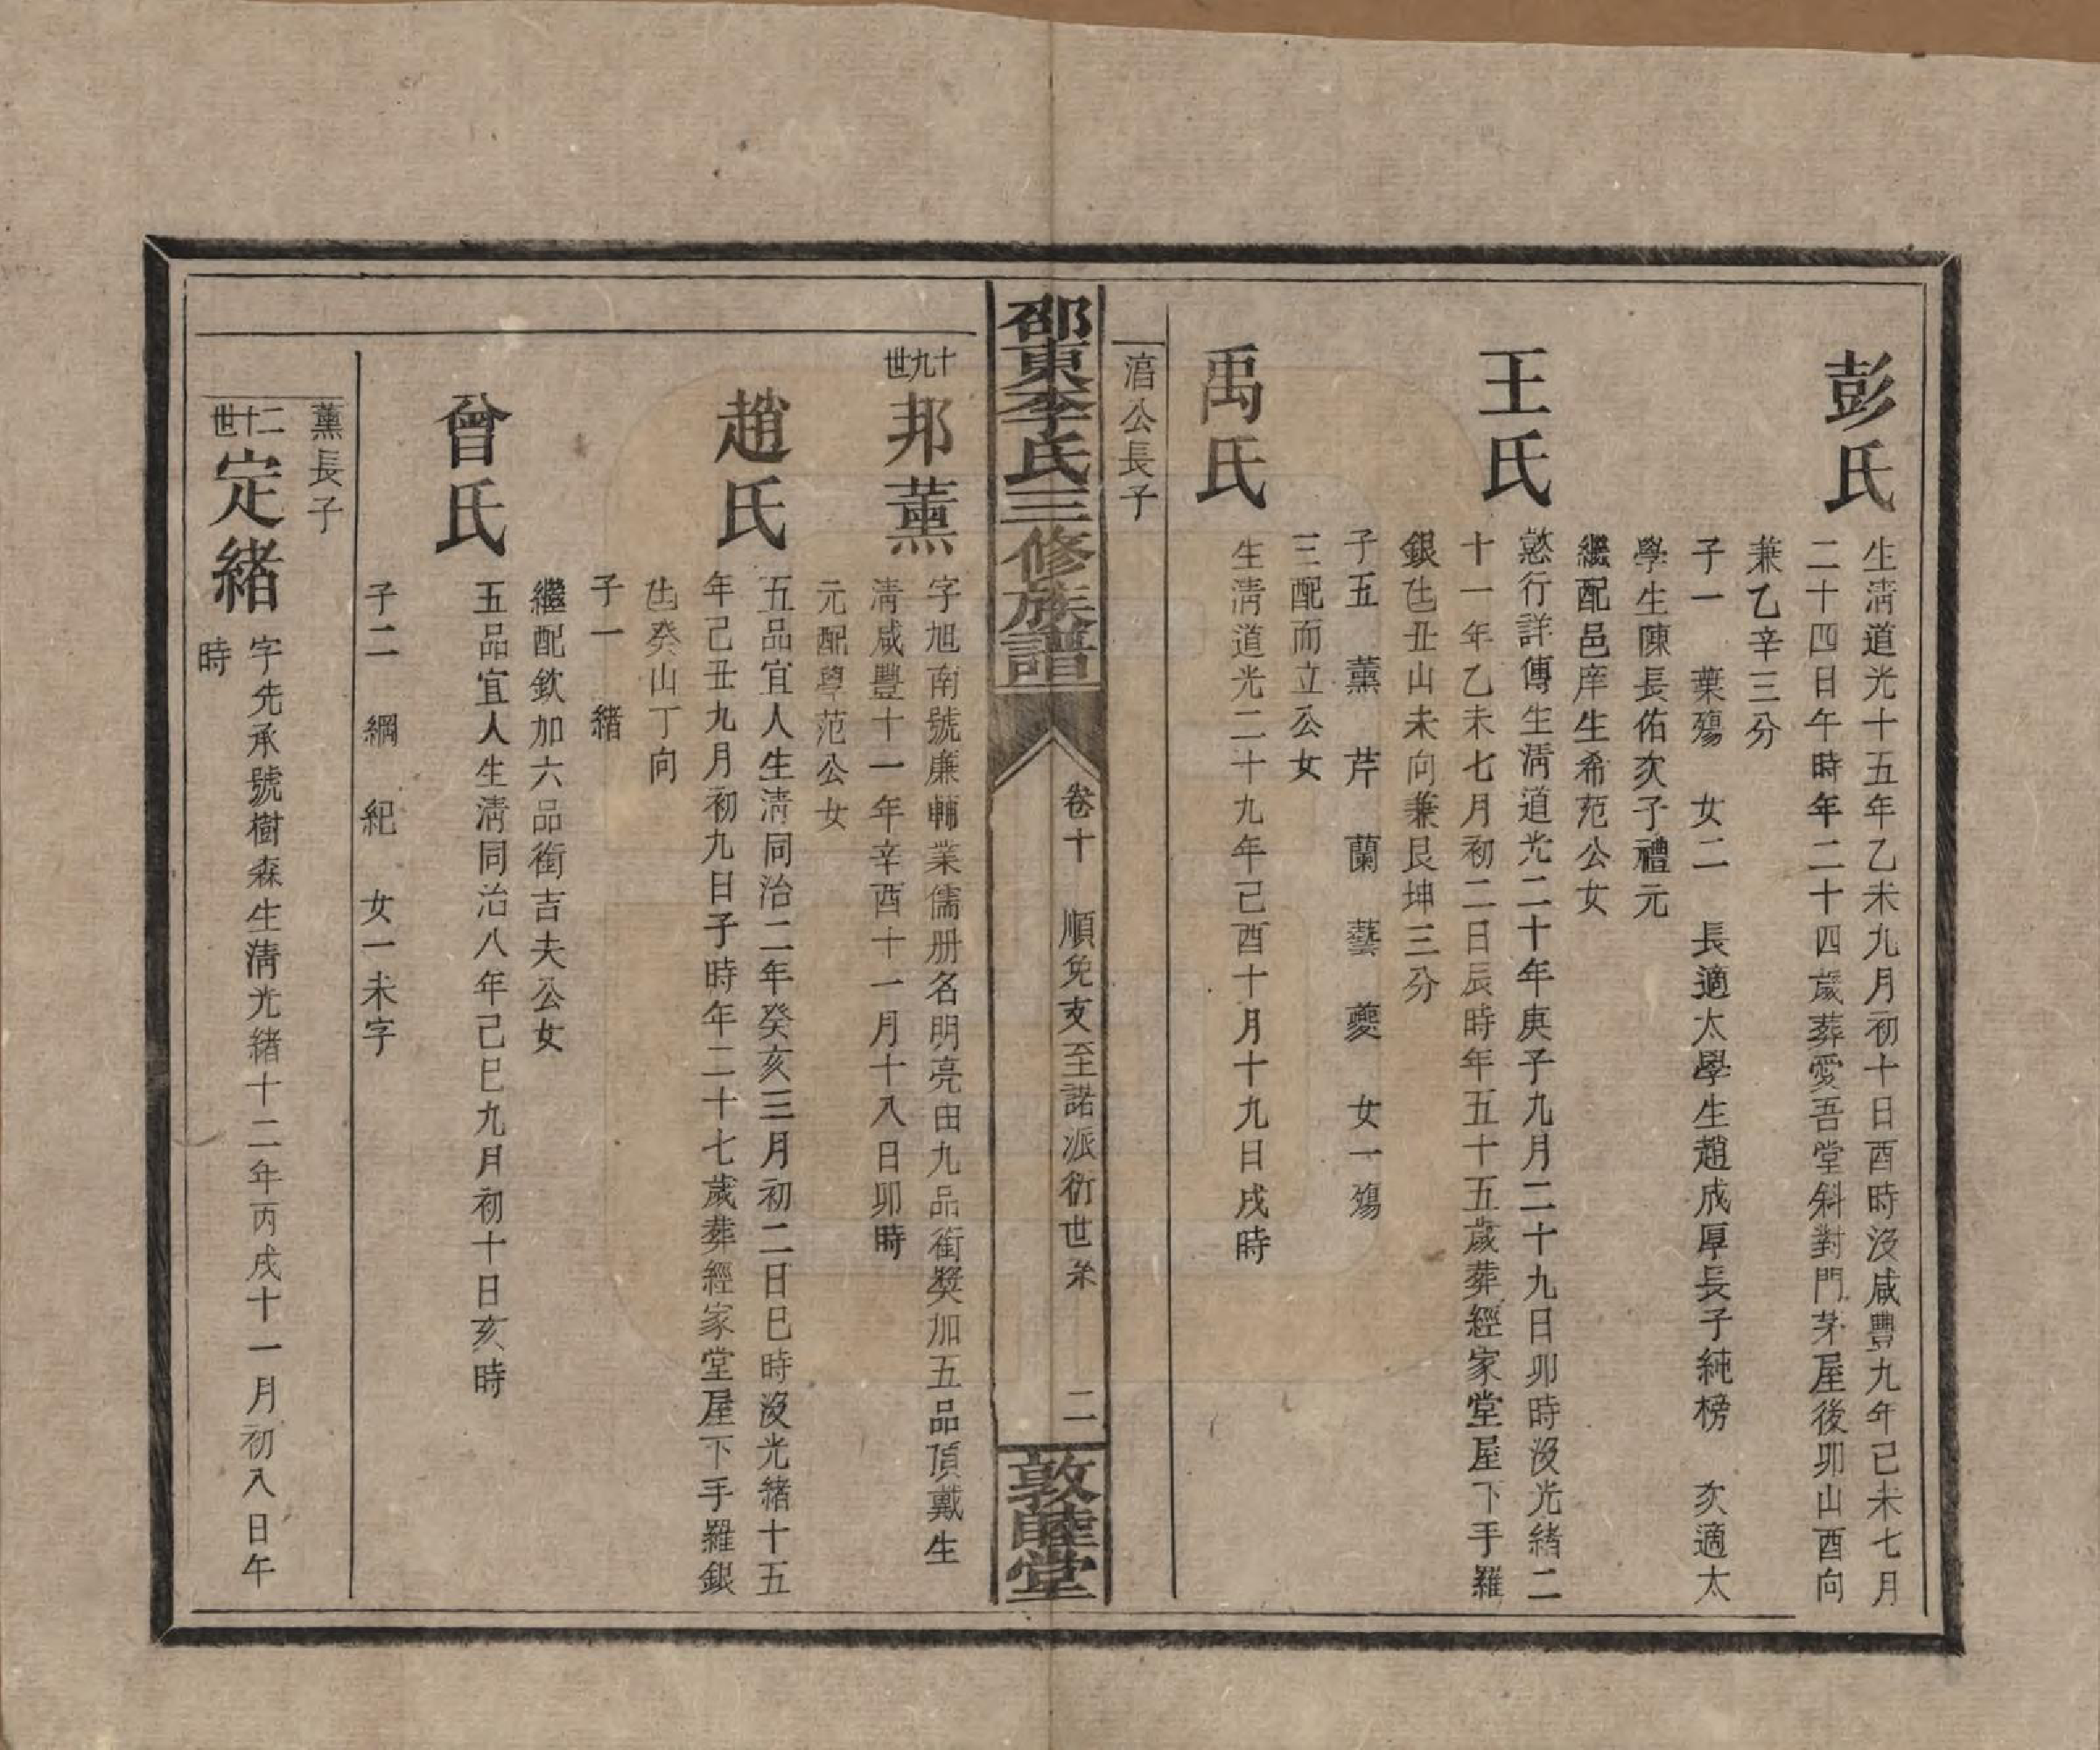 彭氏
生淸道光十五年乙未九月初十日酉時沒咸豐九年己未七月
二十四日午時年二十四歲葬愛吾堂斜對門茅屋後卯山酉向
兼乙辛三分
子一 葉殤 女二 長適太學生趙成厚長子純榜 次適太
學生陳長佑次子禮元
繼配邑庠生希范公女
王氏
懿行詳傳生淸道光二十年庚子九月二十九日卯時沒光緒二
十一年乙未七月初二日辰時年五十五歲葬經家堂屋下手羅
銀𠙚丑山未向兼艮坤三分
子五 薰 芹 蘭 藝 夔 女一殤
三配而立公女
禹氏
生淸道光二十九年己酉十月十九日戌時
湻公長子
邵東李氏三修族譜
卷十 順免支至諾派衍世系 二
敦睦堂
十九世
邦薰
字旭南號廉輔業儒册名明亮由九品銜獎加五品頂戴生
淸咸豐十一年辛酉十一月十八日卯時
元配學范公女
趙氏
五品宜人生淸同治二年癸亥三月初二日巳時沒光緒十五
年己丑九月初九日子時年二十七歲葬經家堂屋下手羅銀
𠙚癸山丁向
子一 緒
繼配欽加六品銜吉夫公女
曾氏
五品宜人生淸同治八年己巳九月初十日亥時
子二 綱 紀 女一未字
薰長子
二十世
定緒
字先承號樹森生淸光緒十二年丙戌十一月初八日午
時